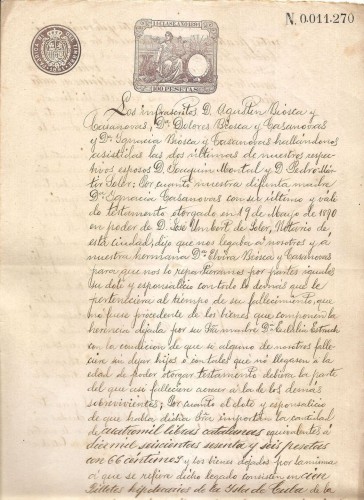 N. 0.011.270
100 PESETAS
Los infrascritos D. Agustin Biosca y
Casanovas, Dª Dolores Biosca y Casanovas
y Dª Ignacia Biosca y Casanovas hallándonos
asistidas las dos últimas de nuestros respec-
tivos esposos D. Joaquin Montal y D. Pedro Mar-
tir Soler: Por cuanto nuestra difunta madre
Dª Ignacia Casanovas con su último y váli-
do testamento otorgado en 19 de Mayo de 1890
en poder de D. Luis Umbert de Soler, Notario de
esta ciudad, dijo que nos legaba á nosotros y a
nuestra hermana Dª Elvira Biosca y Casanovas
para que nos lo repartieramos por partes iguales
su dote y esponsalicio con todo lo demás que le
perteneciera al tiempo de su fallecimiento, que
no fuese procedente de los bienes que componen la
herencia dejada por su Sra. madre Dª Eulalia Estruch
con la condicion de que si alguno de nosotros falle-
cia sin dejar hijos ó contales que no llegasen a la
edad de poder otorgar testamento debiera la parte
del que asi falleciera acrecer a la de los demás
sobrevivientes; Por cuanto el dote y esponsalicio
de que habia dicha Sra. importaron la cantidad
de cuatro mil libras catalanas equivalentes á
diez mil seiscientas sesenta y seis pesetas
con 66 céntimos y los bienes dejados por la misma
a que se refiere dicho legado consisten en cien
Billetes hipotecarios de la Isla de Cuba de la